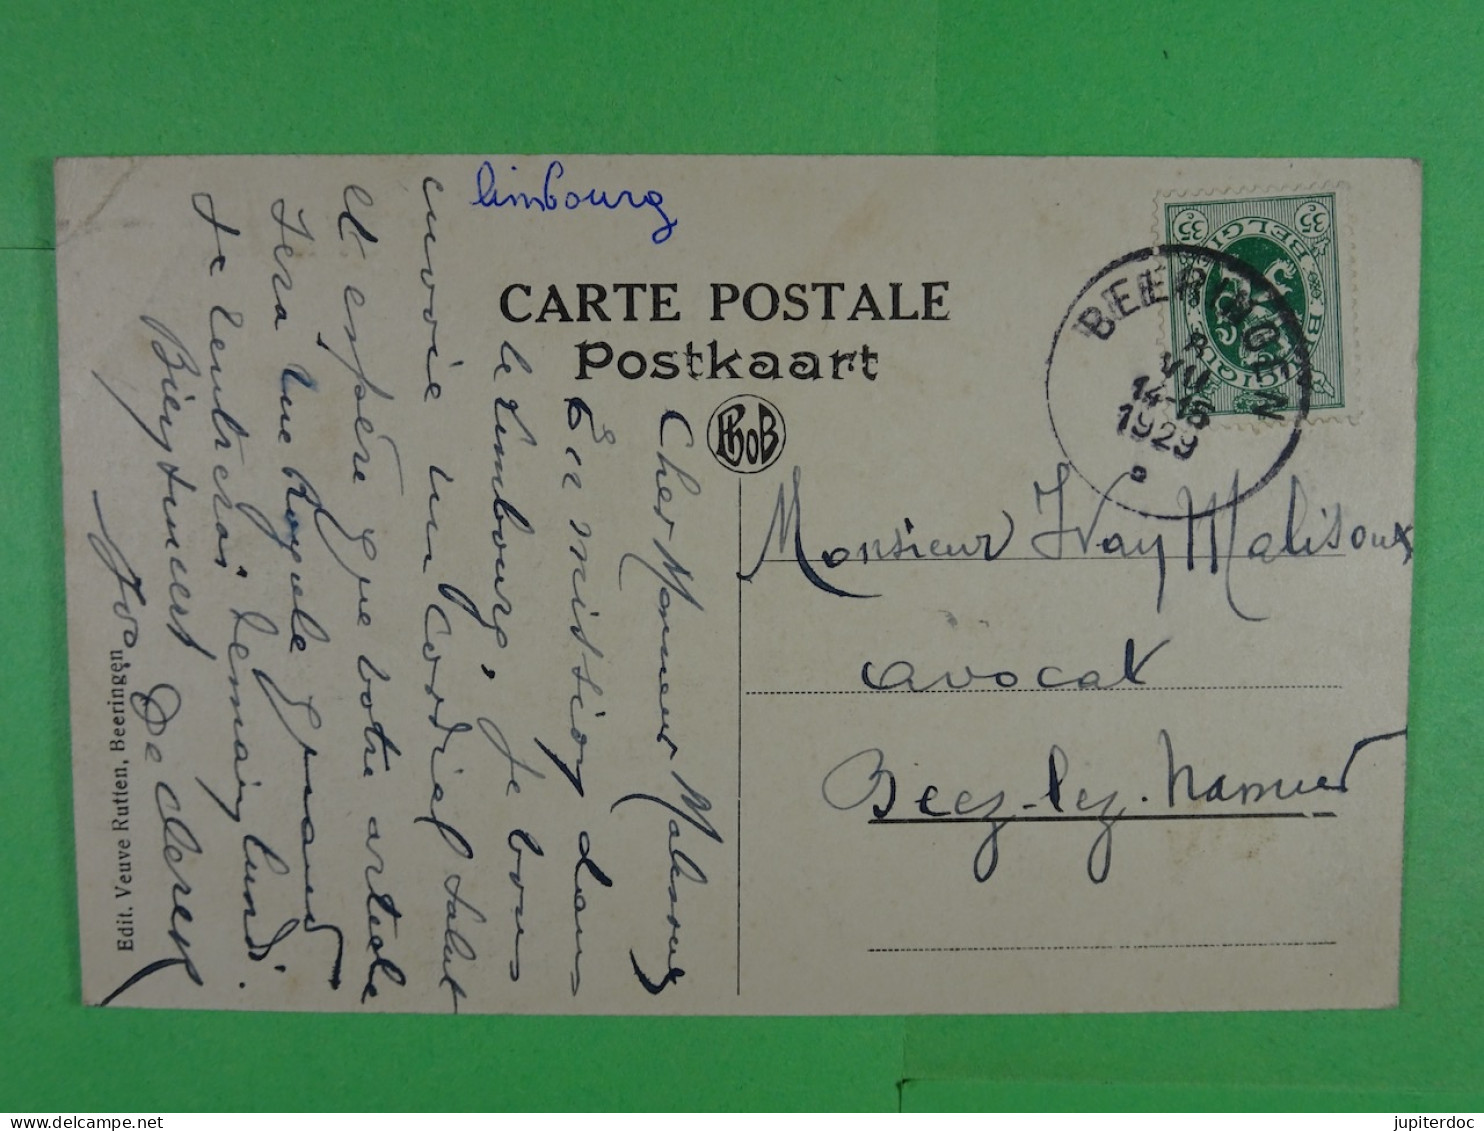 limbourg
CARTE POSTALE
Postkaart
35 c
35 c
BELGIE BELGIQUE
BEERINGEN
8
VII
14-15
1929
Cher Monsieur Malisoux
En mission dans
le Limbourg, je vous
envoie un cordial salut
et espère que votre article
sera une
Je rentrerai demain lundi.
Bien sincères
De Clercq
Monsieur Ivan Malisoux
avocat
Beez-lez-Namur
Edit. Veuve Rutten, Beeringen
jupiterdoc